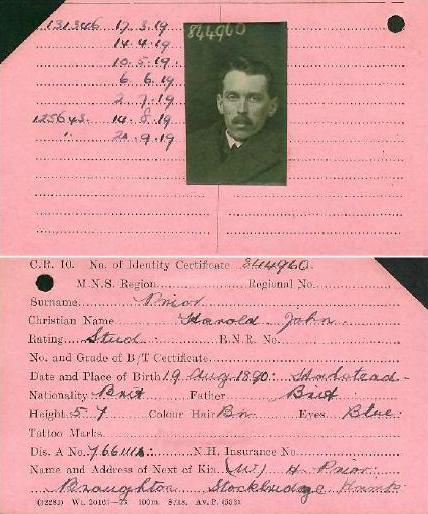 844960
131346 17.3.19
14.4.19
10.5.19
6.6.19
2.7.19
125643 14.8.19
" 21.9.19
C.R. 10. No. of Identity Certificate 844960.
M.N.S. Region Regional No.
Surname Prior
Christian Name Harold John
Rating Stud R.N.R. No.
No. and Grade of B/T Certificate
Date and Place of Birth 19 Aug 1890: -
Nationality Brit Father Brit
Height 5.7 Colour Hair Bn. Eyes Blue.
Tattoo Marks
Dis. A No. N.H. Insurance No.
Name and Address of Next of Kin (W) H Prior
Broughton Stockbridge Hants